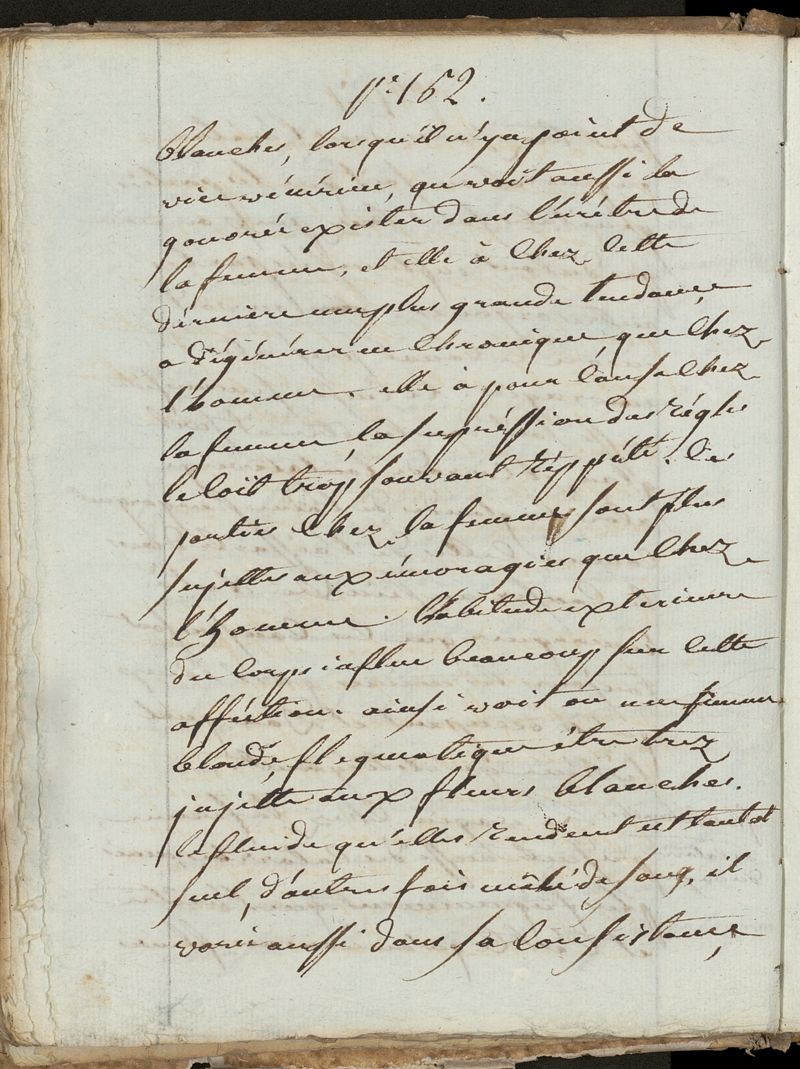 pe. 162.
blanches, lorsqu'il n'y a point de
vice vénérien, on voit aussi la
gonorée exister dans l'urétre de
la femme, et elle à chez cette
dernière une plus grande tendance
a dégénérer en chronique que chez
l'homme. elle à pour cause chez
la femme, la supréssion des régles
le coït trop souvant réppété. les
parties chez la femme sont plus
sujettes aux émoragies que chez
l'homme. l'habitude exterieure
du corps influe beaucoup sur cette
afféction. ainsi voit on une femme
blonde flegmatique être trez
sujette aux fleurs blanches.
le fluide qu'elles rendent est tantot
seul, d'autres fois mêlé de sang, il
varie aussi dans sa consistance,